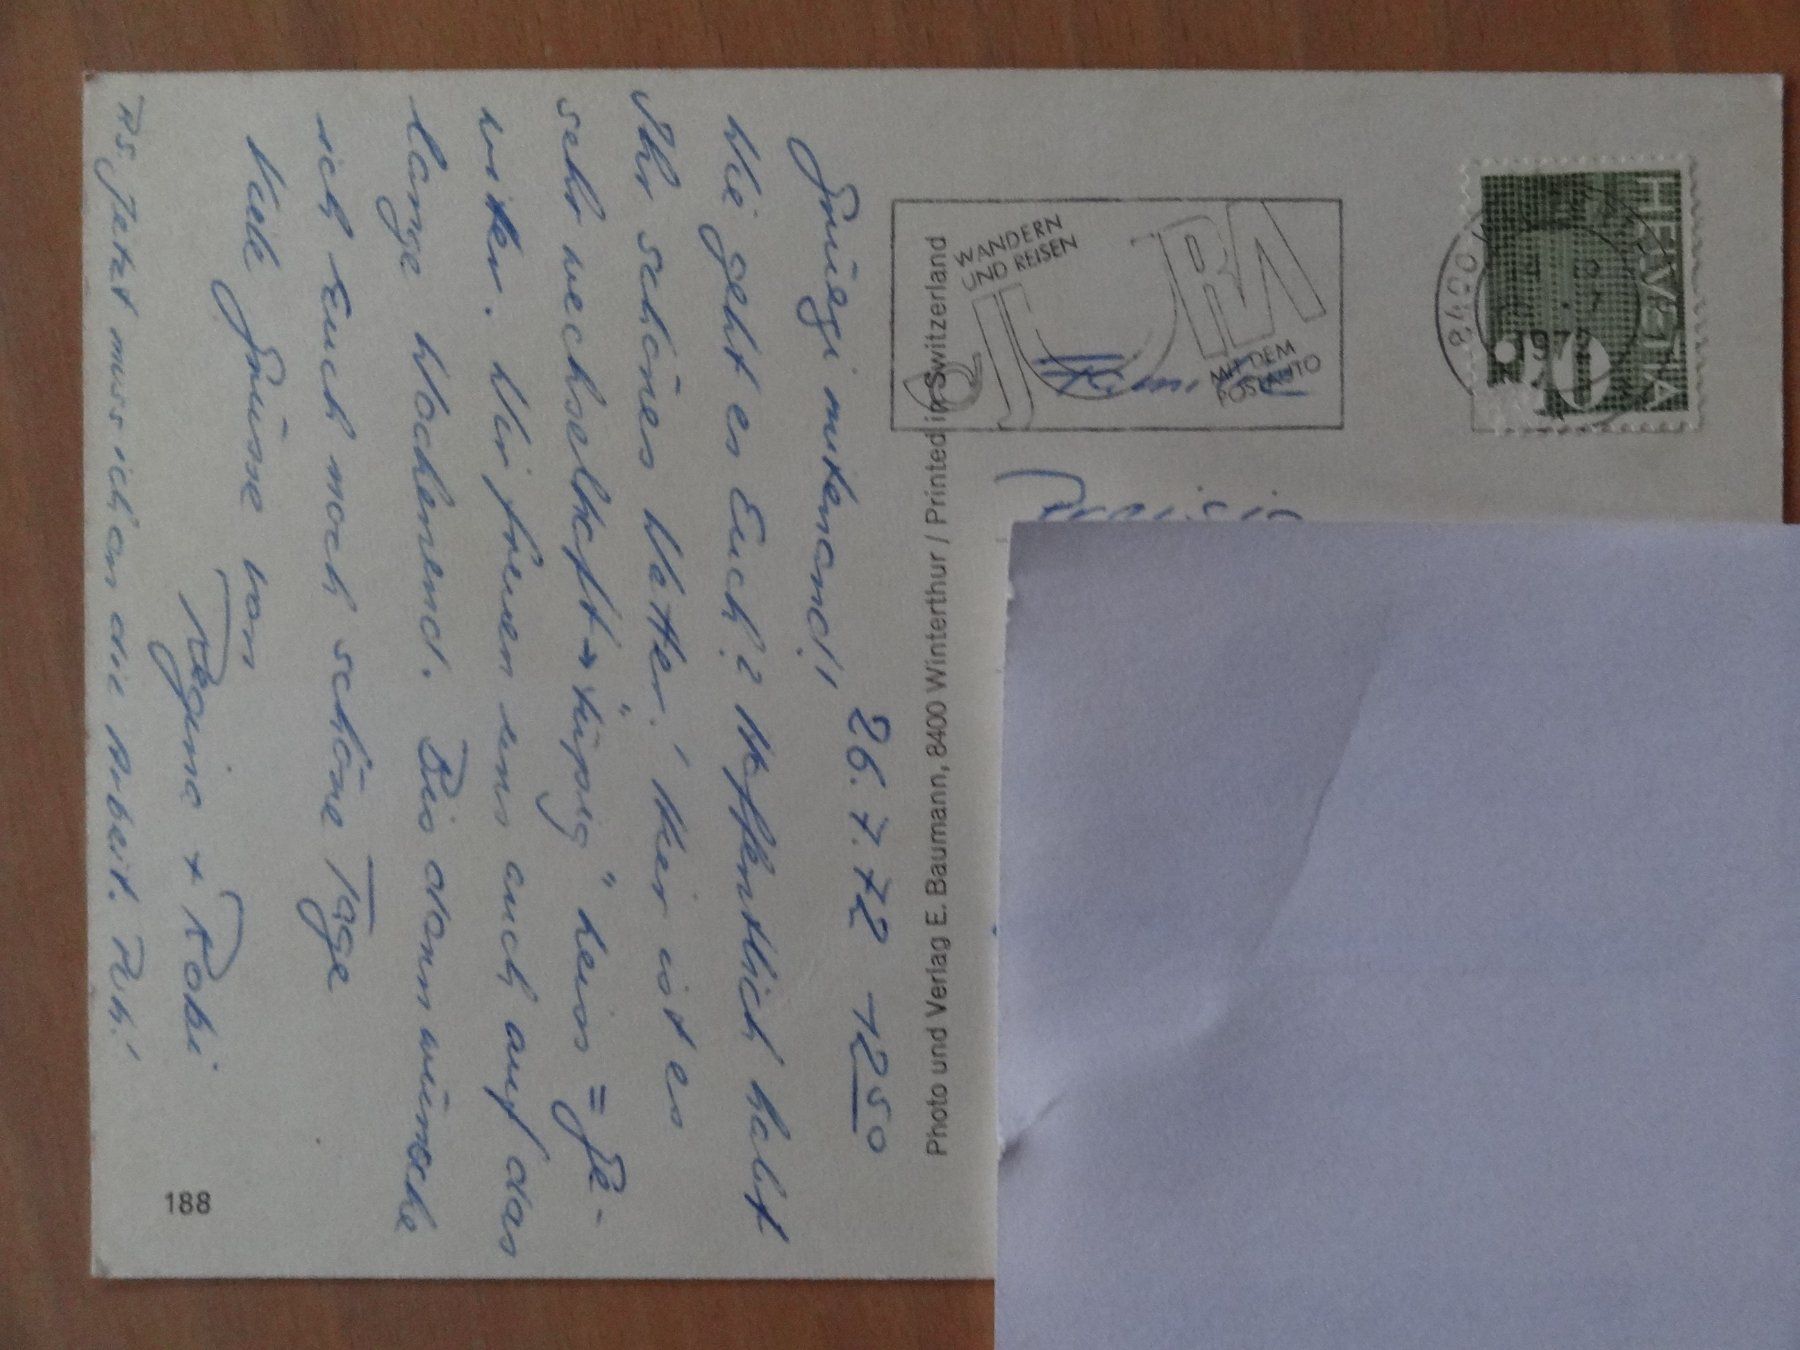 26.7.72 12⁵⁰
Grüezi mitenand!
Wie geht es Euch? Hoffentlich habt
Ihr schönes Wetter! Hier ist es
sehr wechselhaft → "tüpig" heiss = Ge-
witter. Wir freuen uns auch auf das
lange Wochenend. Bis dann wünsche
ich Euch noch schöne Tage
Viele Grüsse von
Regina + Robi
PS. Jetzt muss ich an die Arbeit.
188
Photo und Verlag E. Baumann, 8400 Winterthur / Printed in Switzerland
WANDERN
UND REISEN
JURA
MIT DEM
POSTAUTO
HELVETIA
8400
1972